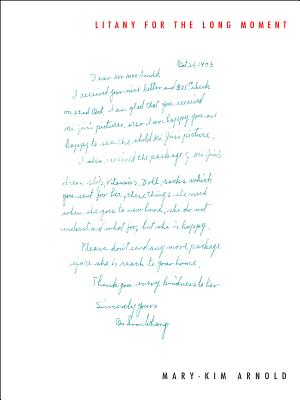 LITANY FOR THE LONG MOMENT
Oct. 26, 1973
Dear Mr Mrs Arnold
I received your nice letter and check
on 22nd Oct. I am glad that you received
Mi Jin's pictures, also I am happy you are
happy to see the child Mi Jin's picture.
I also received the package of Mi Jin's
dress, slip, vitamins, Doll, socks which
you sent for her, these things she need
when she goes to new home, she do not
understand what for, but she is happy.
Please don't send any more package
before she is reach to your home.
Thank you every kindness to her
Sincerely yours
MARY-KIM ARNOLD